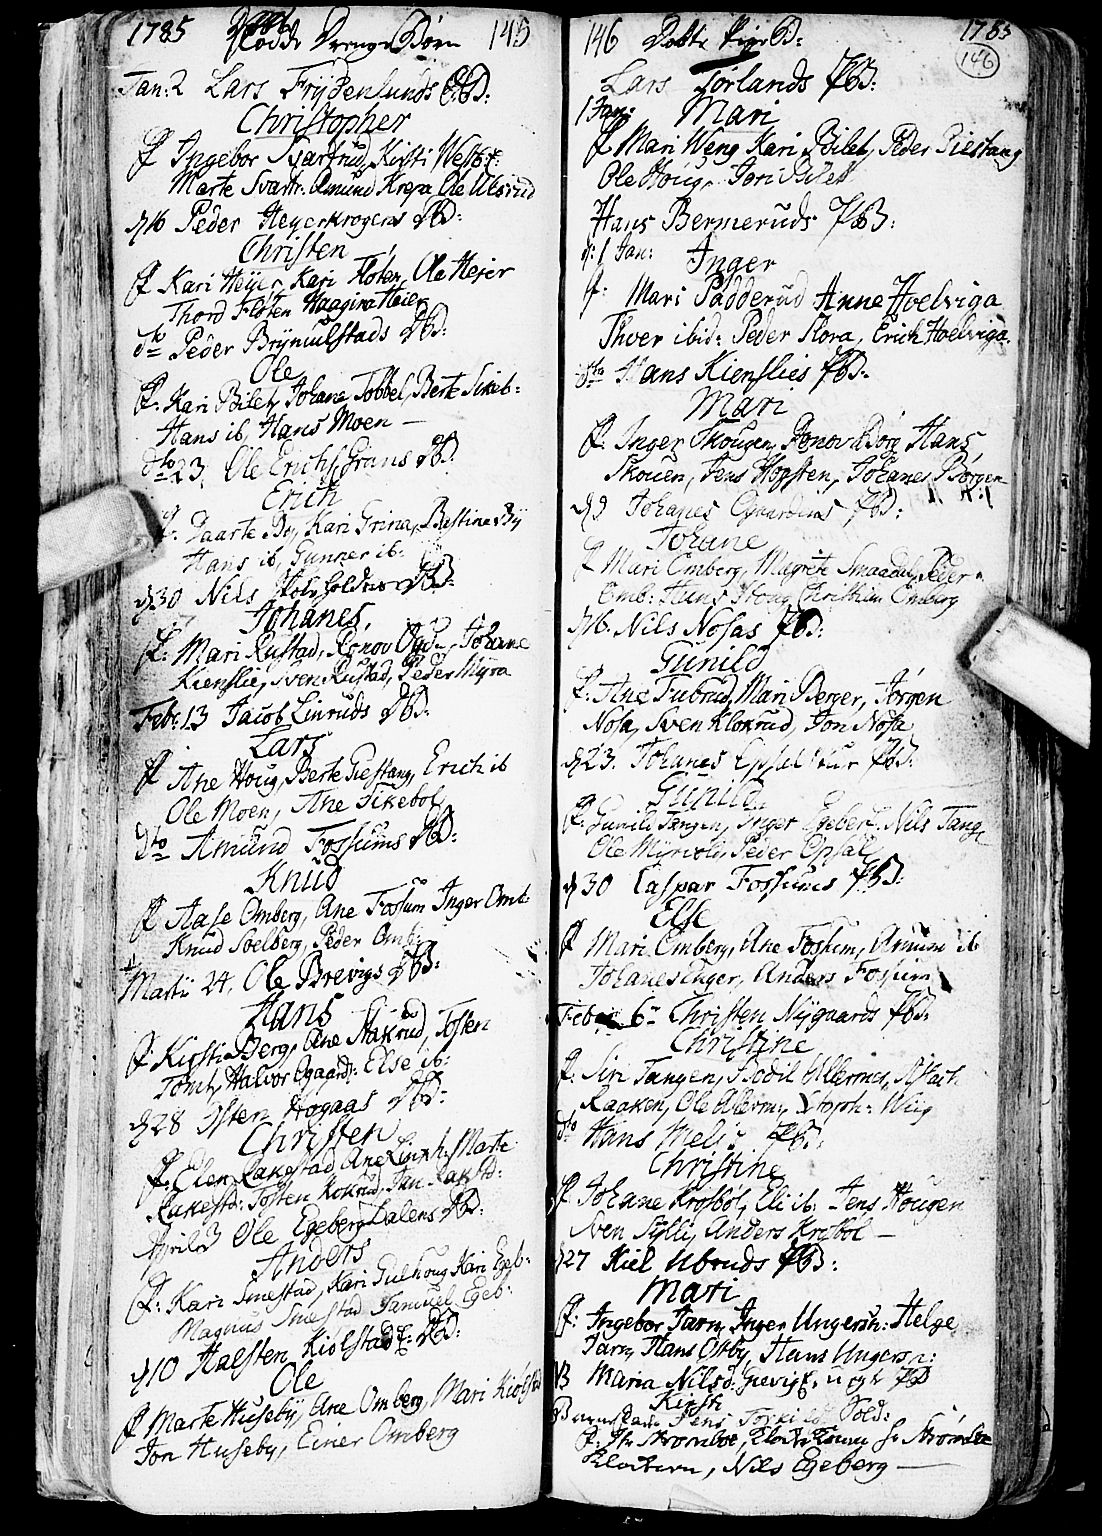 1785 Døbte Drenge Børn 145
Jan: 2 Lars Frydenlunds DB:
Christopher
f Ingebor Svartrud, Kisti Westb:
Marte Svartr: Amund Krepa Ole Alsrud
d 16 Peder Heyerkrogens DB:
Christen
f Kari Heyer, Kari Floten, Ole Hejer
Thord Floten Haagina Heier
dto Peder Brynnulfstads DB:
Ole
f: Kari Bilet, Johane Tobbel, Berte Sikeb:
Hans ib, Hans Moen —
dto 23, Ole Erichs, Grans DB:
Erich
f: By, Kari Grina, By
Hans ib, Gunner ib:
d 30 Nils DB:
Johanes,
f: Mari Rustad, Ronov, Johane
Kienslie, Sven Rustad, Peder Myra
Febr: 13 Jacob Linruds DB:
Lars
f Ane Houg, Berte Giestang, Erich ib
Ole Moen, Ane Sikebøl,
dto Amund Fossums DB:
Knud
f Aase Omberg, Ane Fossum Inger Omb:
Knud Soelberg, Peder Omb:
Martii 24. Ole Brevigs DB:
Hans
f: Kirsti Berg, Ane Stakrud, Tosten
Tomt, Halvor Ogaard: Else ib:
d 28 Osten Hogaas DB:
Christen
f: Elen Rakestad, Ane, Marte
Rakestd: Tosten Kokrud, Jan Rakstd:
April 3 Ole Egeberg Dalens DB:
Anders
f: Kari Snestad, Kari Gulhoug Kari Egeb:
Magnus Snestad Samuel Egeb:
d 10 Halsten Kiolstad E: DB:
Ole
f Marte Huseby, Ane Omberg, Mari Kiølstd
Jon Huseby, Einer Omberg
146 Døbte Pige B: 1785
146
Lars Torlands PB:
1 Jan: Mari
f Mari Weng Kari Bilet, Peder Giestang
Ole Houg, Jori Bilet
Hans Bermeruds PB:
d: 1 Jan: Inger
f: Mari Padderud Anne Hvelviga
Thver ibid: Peder Flora, Erich Hvelviga.
dto Hans Kienslies PB:
Mari
f: Inger Skougen, Ronov Børg, Hans
Skouen, Jens Hopsten, Johanes Børgen
d 9 Johanes Ogaardens PB:
Johane
f Mari Omberg, Magrete Smaadal, Peder
Omb: Hans Houg Christian Omberg
d 16. Nils Nosas PB:
Gunild
f: Ane Fubrud, Mari Berger, Jørgen
Nosa, Sven Klokrud, Jon Nosa
d 23. Johanes Opsal PB:
Gunild
f: Gunild Tangen, Inger Egeber: Nils Tang
Ole Myrvold, Peder Opsal
d 30 Caspar Fossums PB:
Else
f Mari Omberg, Ane Fossum, Amun ib
Johanes Unger, Anders Fossum
Febr: 6 Christen Nygaards PB:
Christine
f: Siri Tangen, Bodil Ullern, Aslach
Raaken, Ole Ullern, Stoph: Wiig
dto Hans PB:
Christine
f Johane Krosbøl, Eli ib: Jens Hougen
Sven Sylli, Anders Krosbøl —
d 27 Kiel Ubruds PB:
Mari
f: Ingebor Jarn, Inger Ungersn: Helge
Jarn, Hans Ostby, Hans Ungersn:
13 Maria Nilsd: Grevigs, PB
Kirsti
Jens Torkilds Sold:
f: Strømboe, Fru Strømboe
Klockern, Nils Egeberg —